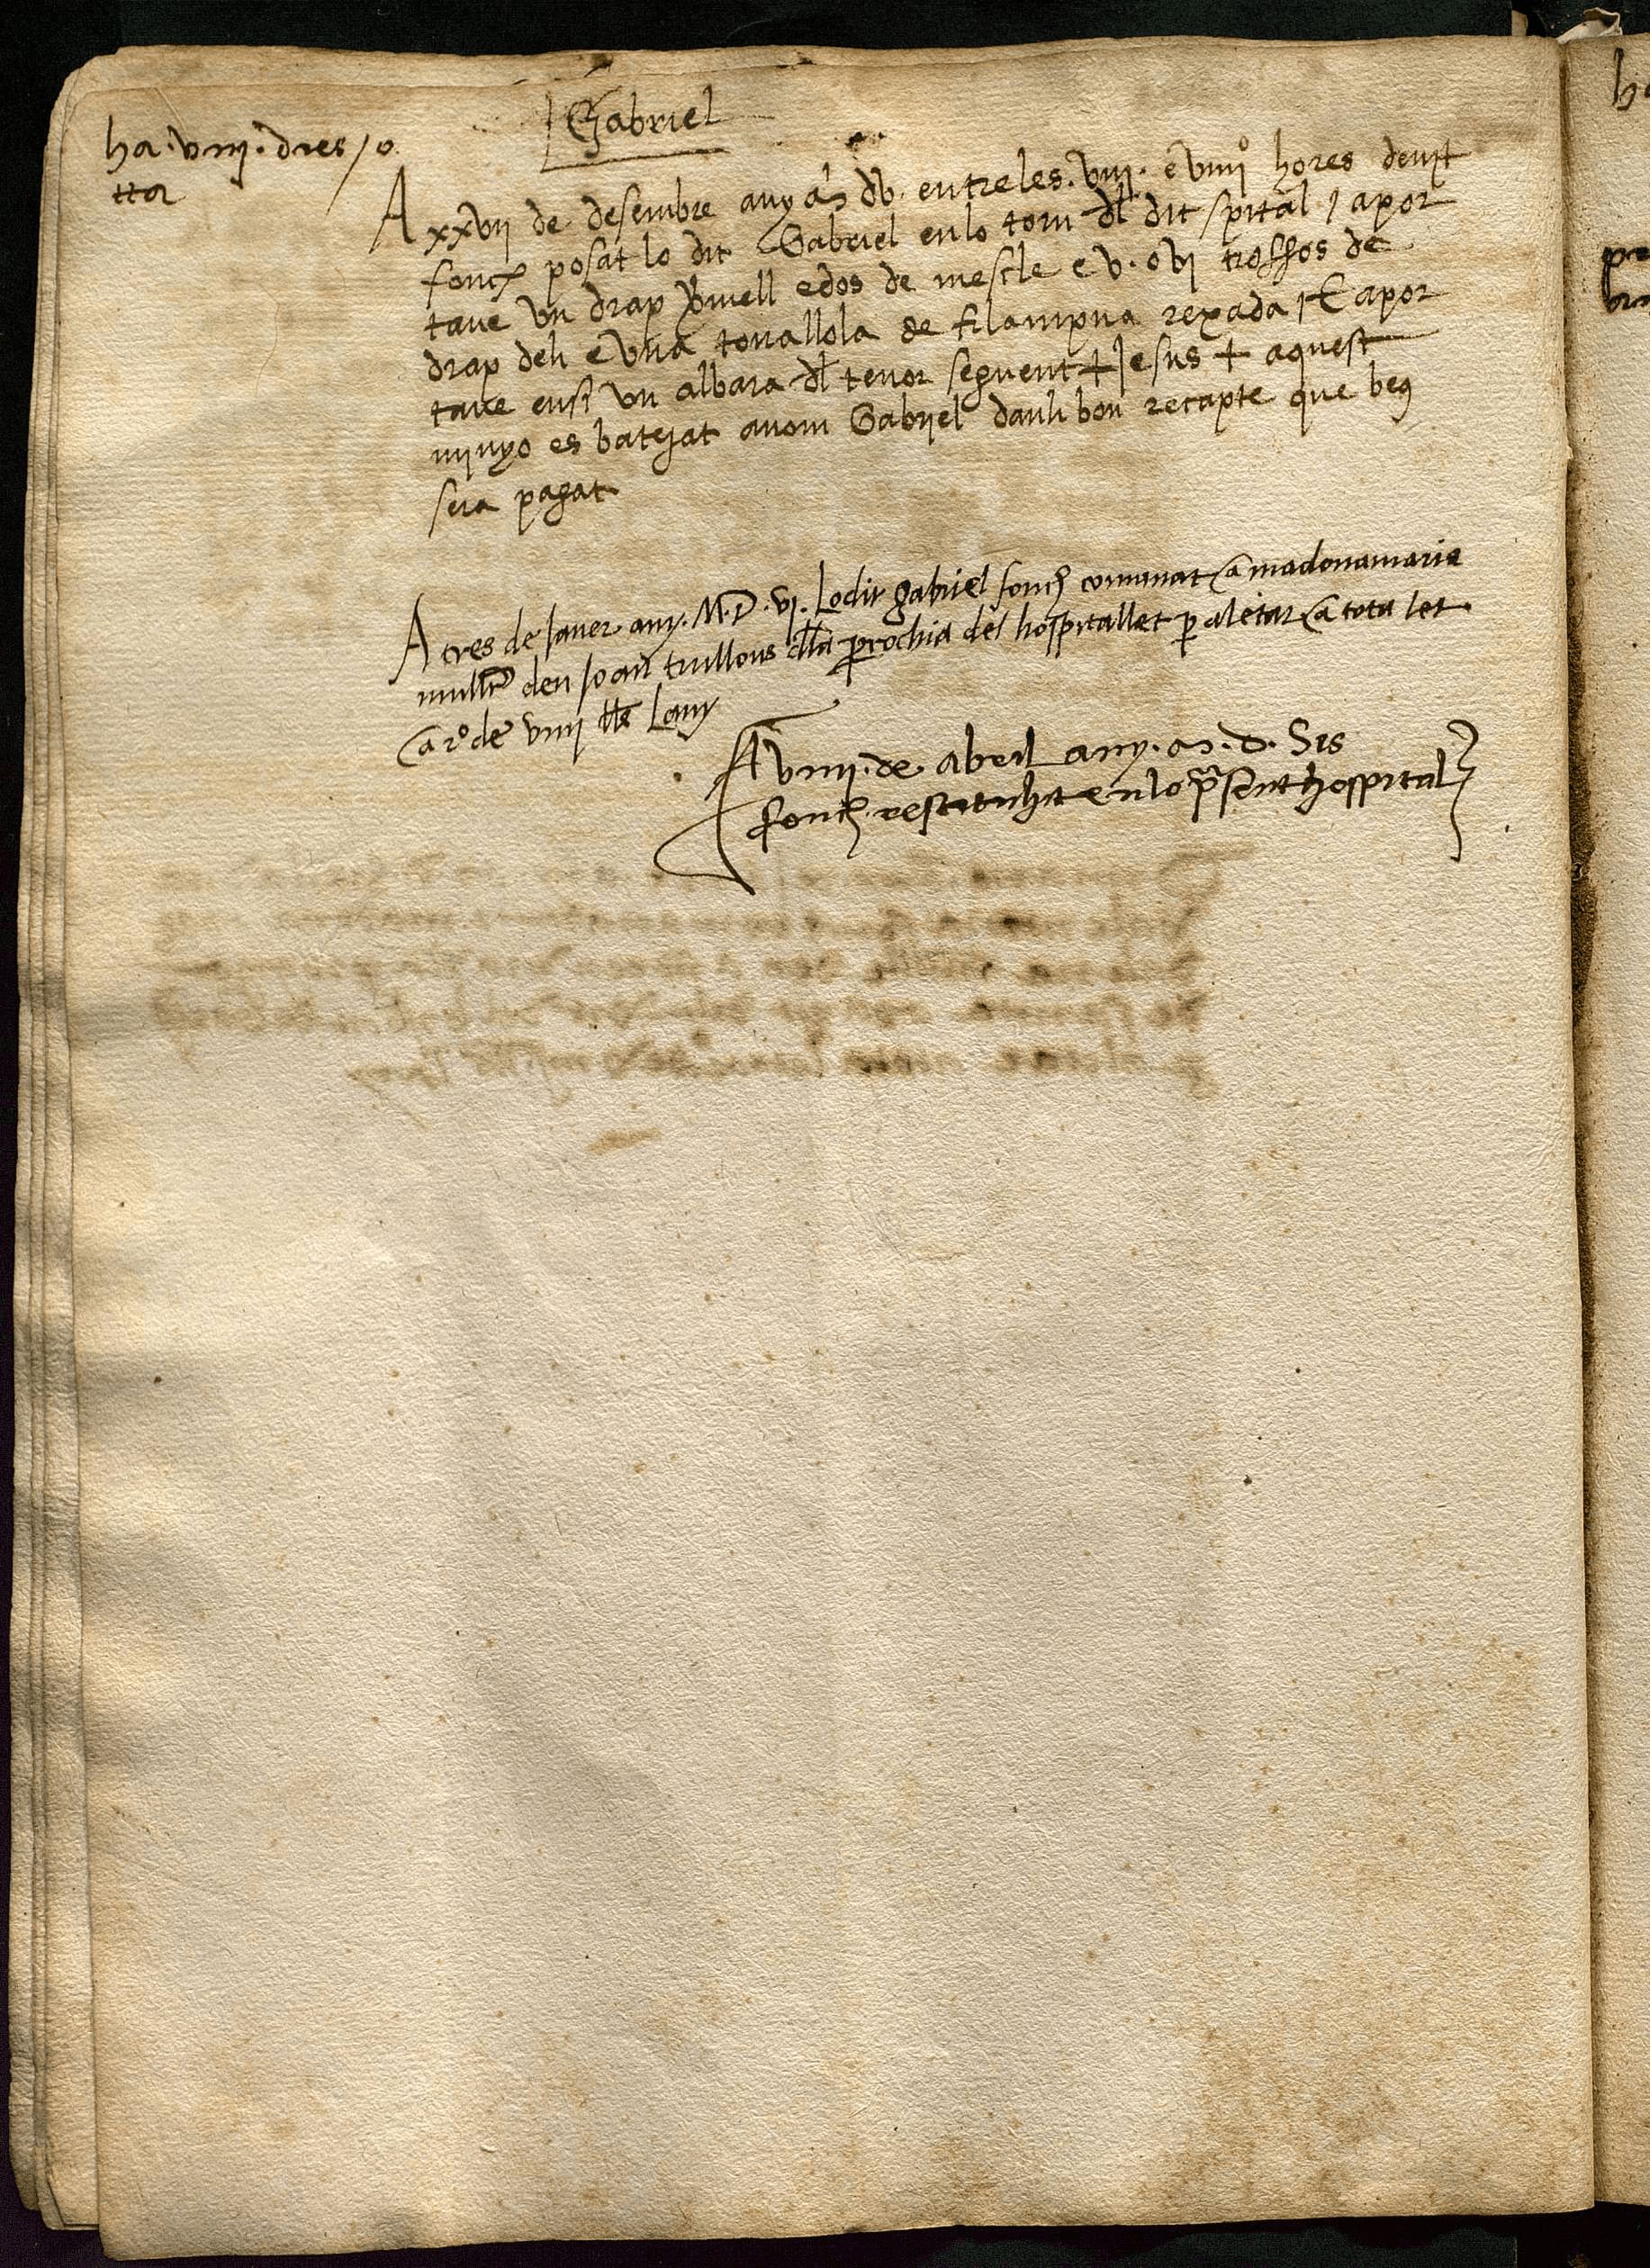 Gabriel
ha . viiij . dies / o
tta
A xxvij de desembre any M dv . entre les . viij . e viiijº hores de nit
fonch posat lo dit Gabriel en lo torn dl dit spital / apor
tave un drap vmell e dos de mescle e v . o vi trossos de
drap de li e una tovallola de filampua rexada / E apor
tave ensi un albara dl tenor seguent + Jesus + aquest
minyo es batejat a nom Gabriel dauli bon recapte que be
sera pagat
A tres de Janer any . M . D . vj . Lo dit gabriel fonch comanat a madona maria
mullr den Joan trullous dlla perochia del hospitallet p aletar a tota let
a rº de viiij lls lany
A viiij . de abril any . M . D . Sis
fonch restituhit en lo psent hospital